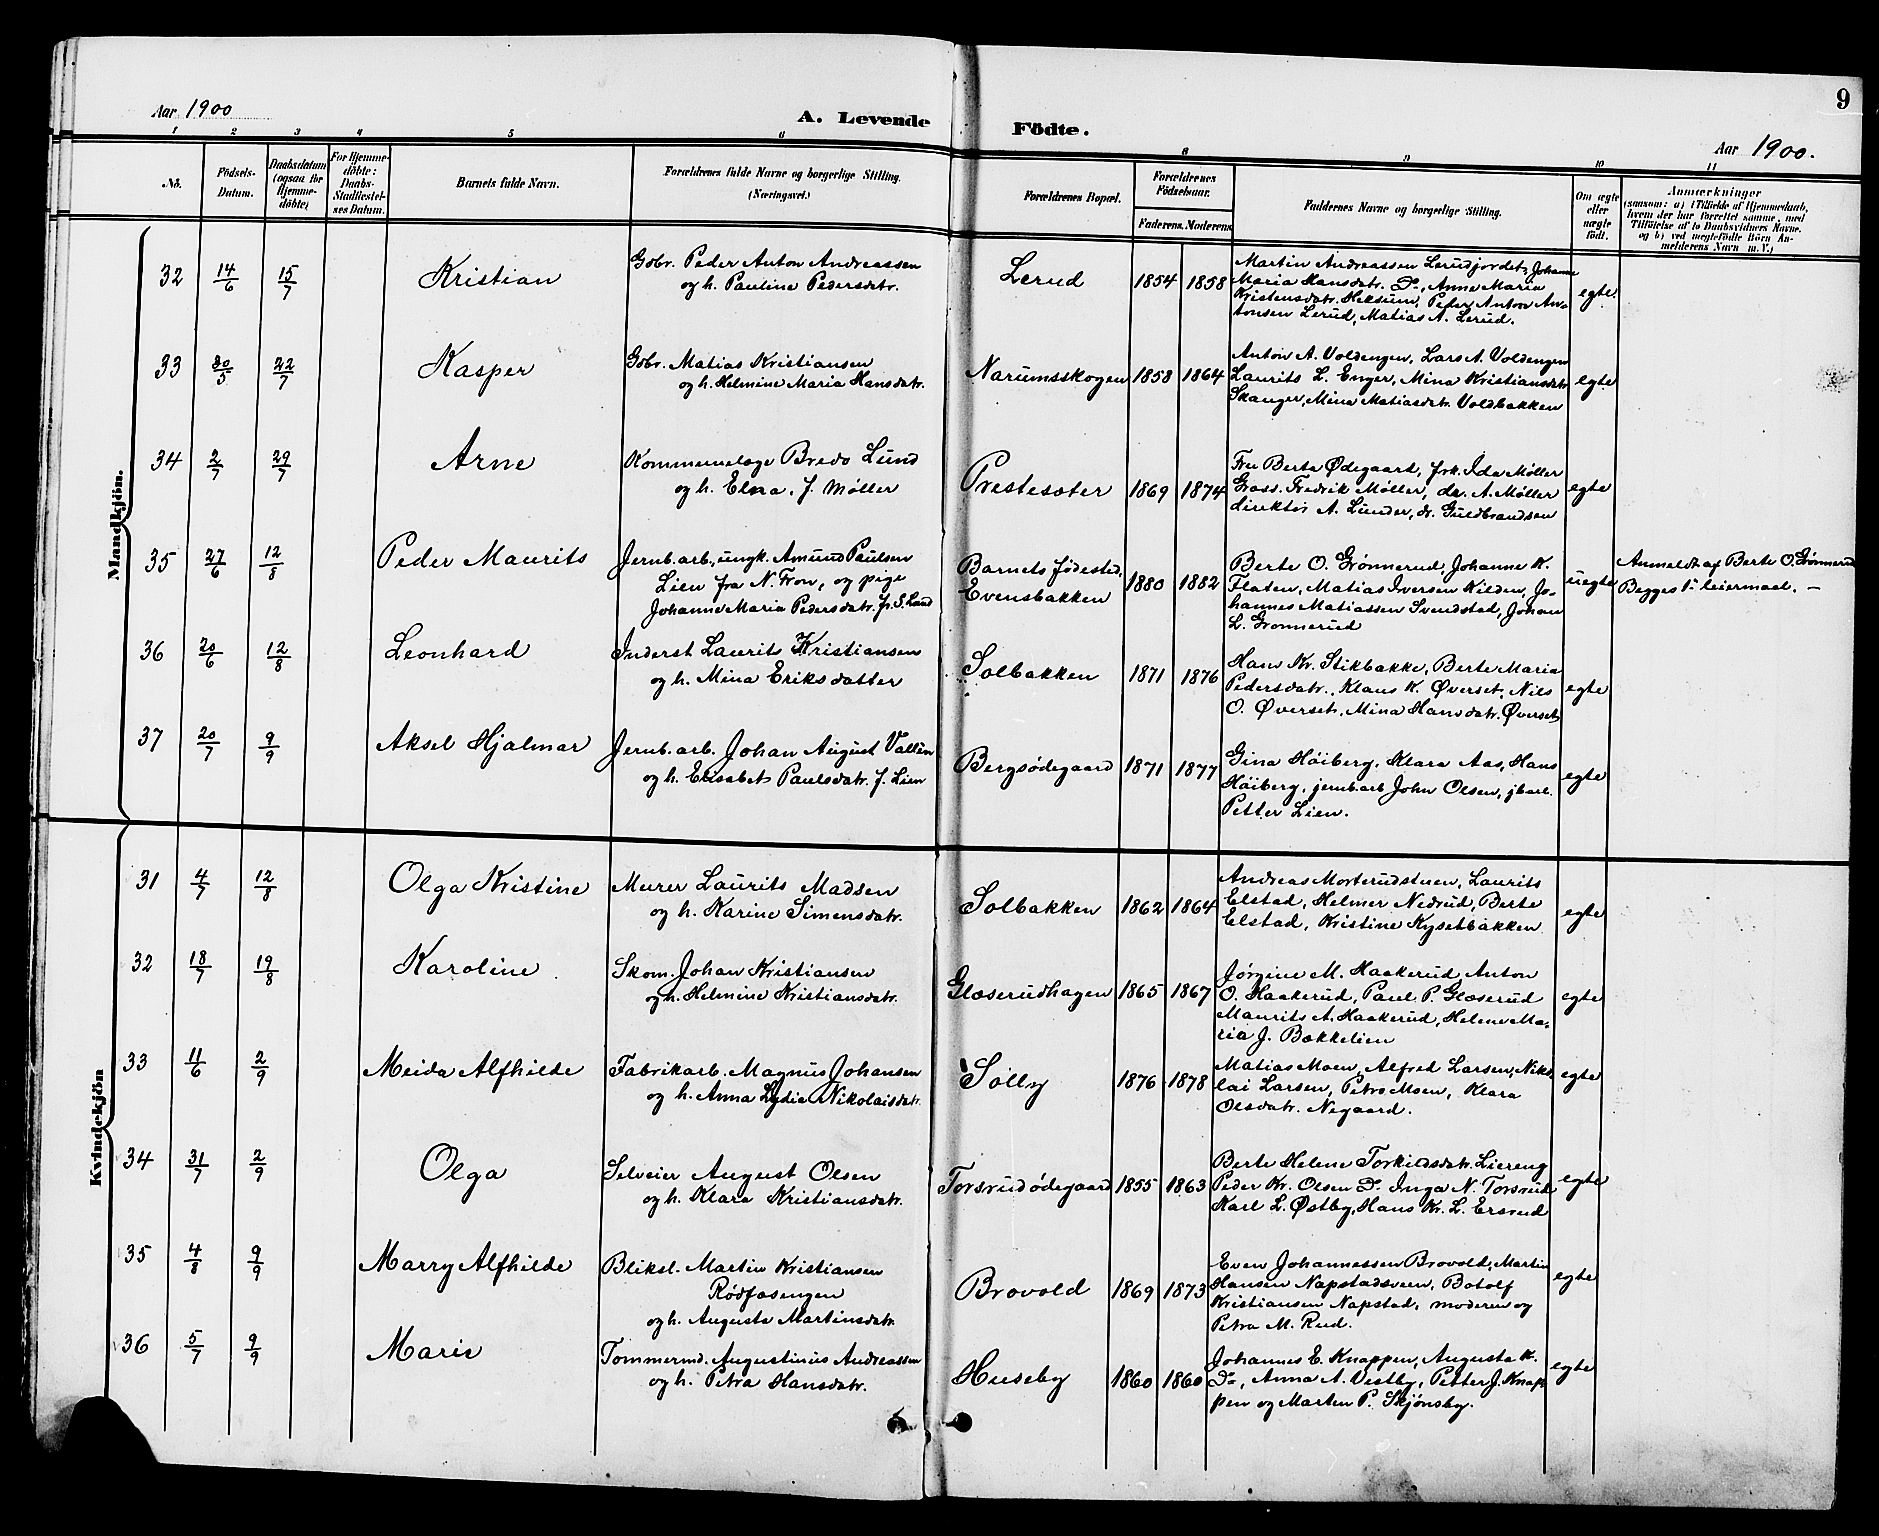 Aar 1900
A. Levende Födte.
9
Aar 1900.
1 2 3 4 5 6 6 9 10 11
No.
Födsels-Datum.
Daabsdatum (ogsaa for Hjemme-döbte)
For Hjemme-döbte: Daabs-Stadfæstel-ses Datum.
Barnets fulde Navn.
Forældrenes fulde Navne og borgerlige Stilling. (Næringsvei.)
Forældrenes Bopæl.
Forældrenes Födselsaar.
Faderens. Moderens.
Faddernes Navne og borgerlige Stilling.
Om ægte eller uægte födt.
Anmærkninger
(saasom: a) i Tilfælde af Hjemmedaab,
hvem der har forrettet samme, med
Tilföielse af to Daabsvidners Navne.
og b) ved uægtefödte Börn An-
melderens Navn m. V.)
Mandkjön.
32 14/6 15/7 Kristian
Gbr. Peder Anton Andreassen
og h. Pauline Pedersdatr.
Lerud 1854 1858
Martin Andreassen Lerudjordet, Johanne
Maria Hansdatr. Do, Anna Maria
Kristensdatr. Heksum, Peder Anton An-
tonsen Lerud, Matias A. Lerud.
egte
33 30/5 22/7 Kasper
Gbr. Matias Kristiansen
og h. Helmine Maria Hansdatr.
Narumsskogen 1858 1864
Anton A. Voldengen, Lars A. Voldengen
Laurits L. Enger, Mina Kristiansdatr
Skanger, Mina Matiasdatr. Voldbakken
egte
34 2/7 29/7 Arne
Kommunelæge Bredo Lund
og h. Elna, f. Møller
Prestesæter 1869 1874
Fru Berta Ødegaard, frk. Ida Møller
Gross. Fredrik Møller, dr. A. Møller
direktør A. Lunder, dr. Guldbrandsen
egte
35 27/6 12/8 Peder Maurits
Jernb. arb., ungk. Amund Paulsen
Lien fra N. Fron, og pige
Johanne Maria Pedersdatr. fr. S. Land
Barnets fødested,
Evensbakken 1880 1882
Berte O. Grønnerud, Johanne K.
Flaten, Matias Iversen Kilden, Jo-
hannes Matiassen Svendstad, Johan
L. Grønnerud
uegte
Anmeldt af Berte O. Grønnerud
Begges 1ste leiermaal. —
36 20/6 12/8 Leonhard
Inderst Laurits Kristiansen
og h. Mina Eriksdatter
Solbakken 1871 1876
Hans Kr. Stikbakke, Berte Maria
Pedersdatr., Klaus K. Øverset, Nils
O. Øverset, Mina Hansdatr. Øverset
egte
37 20/7 9/9 Aksel Hjalmar
Jernb. arb. Johan August Vallin
og h. Elisabet Paulsdatr. f. Lien
Bergsødegaard 1871 1877
Gina Høiberg, Klara Aas, Hans
Høiberg, jernb.arb John Olsen, jbarb.
Petter Lien.
egte
Kvindekjön
31 4/7 12/8 Olga Kristine
Murer Laurits Madsen
og h. Karine Simensdatr.
Solbakken 1862 1864
Andreas Morterudstuen, Laurits
Elstad, Helmer Nedrud, Berte
Elstad, Kristine Kysetbakken
egte
32 18/7 19/8 Karoline
Skom. Johan Kristiansen
og h. Helmine Kristiansdatr.
Glæserudhagen 1865 1867
Jørgine M. Haakerud, Anton
O. Haakerud, Paul P. Glæserud
Maurits A. Haakerud, Helene Ma-
ria J. Bakkelien
egte
33 11/6 2/9 Meida Alfhilde
Fabrikarb. Magnus Johansen
og h. Anna Lydia Nikolaisdatr.
Solby 1876 1878
Matias Moen, Alfred Larsen, Niko-
lai Larsen, Petra Moen, Klara
Olsdatr. Negaard.
egte
34 31/7 2/9 Olga
Selveier August Olsen
og h. Klara Kristiansdatr.
Torsrudødegaard 1855 1863
Berte Helene Torkildsdatr. Liereng
Peder Kr. Olsen Do, Inga N. Torsrud
Karl L. Østby, Hans Kr. L. Ersrud
egte
35 4/8 9/9 Marry Alfhilde
Bliksl. Martin Kristiansen
Rødfosengen
og h. Augusta Martinsdatr.
Brovold 1869 1873
Even Johannessen Brovold, Martin
Hansen Napstadsveen, Botolf
Kristiansen Napstad, moderen og
Petra M. Rud.
egte
36 5/7 9/9 Marie
Tømmermd. Augustinus Andreassen
og h. Petra Hansdatr.
Huseby 1860 1860
Johannes E. Knappen, Augusta K.
Do, Anna A. Vestby, Petter J. Knap-
pen og Marten P. Skjønsby.
egte